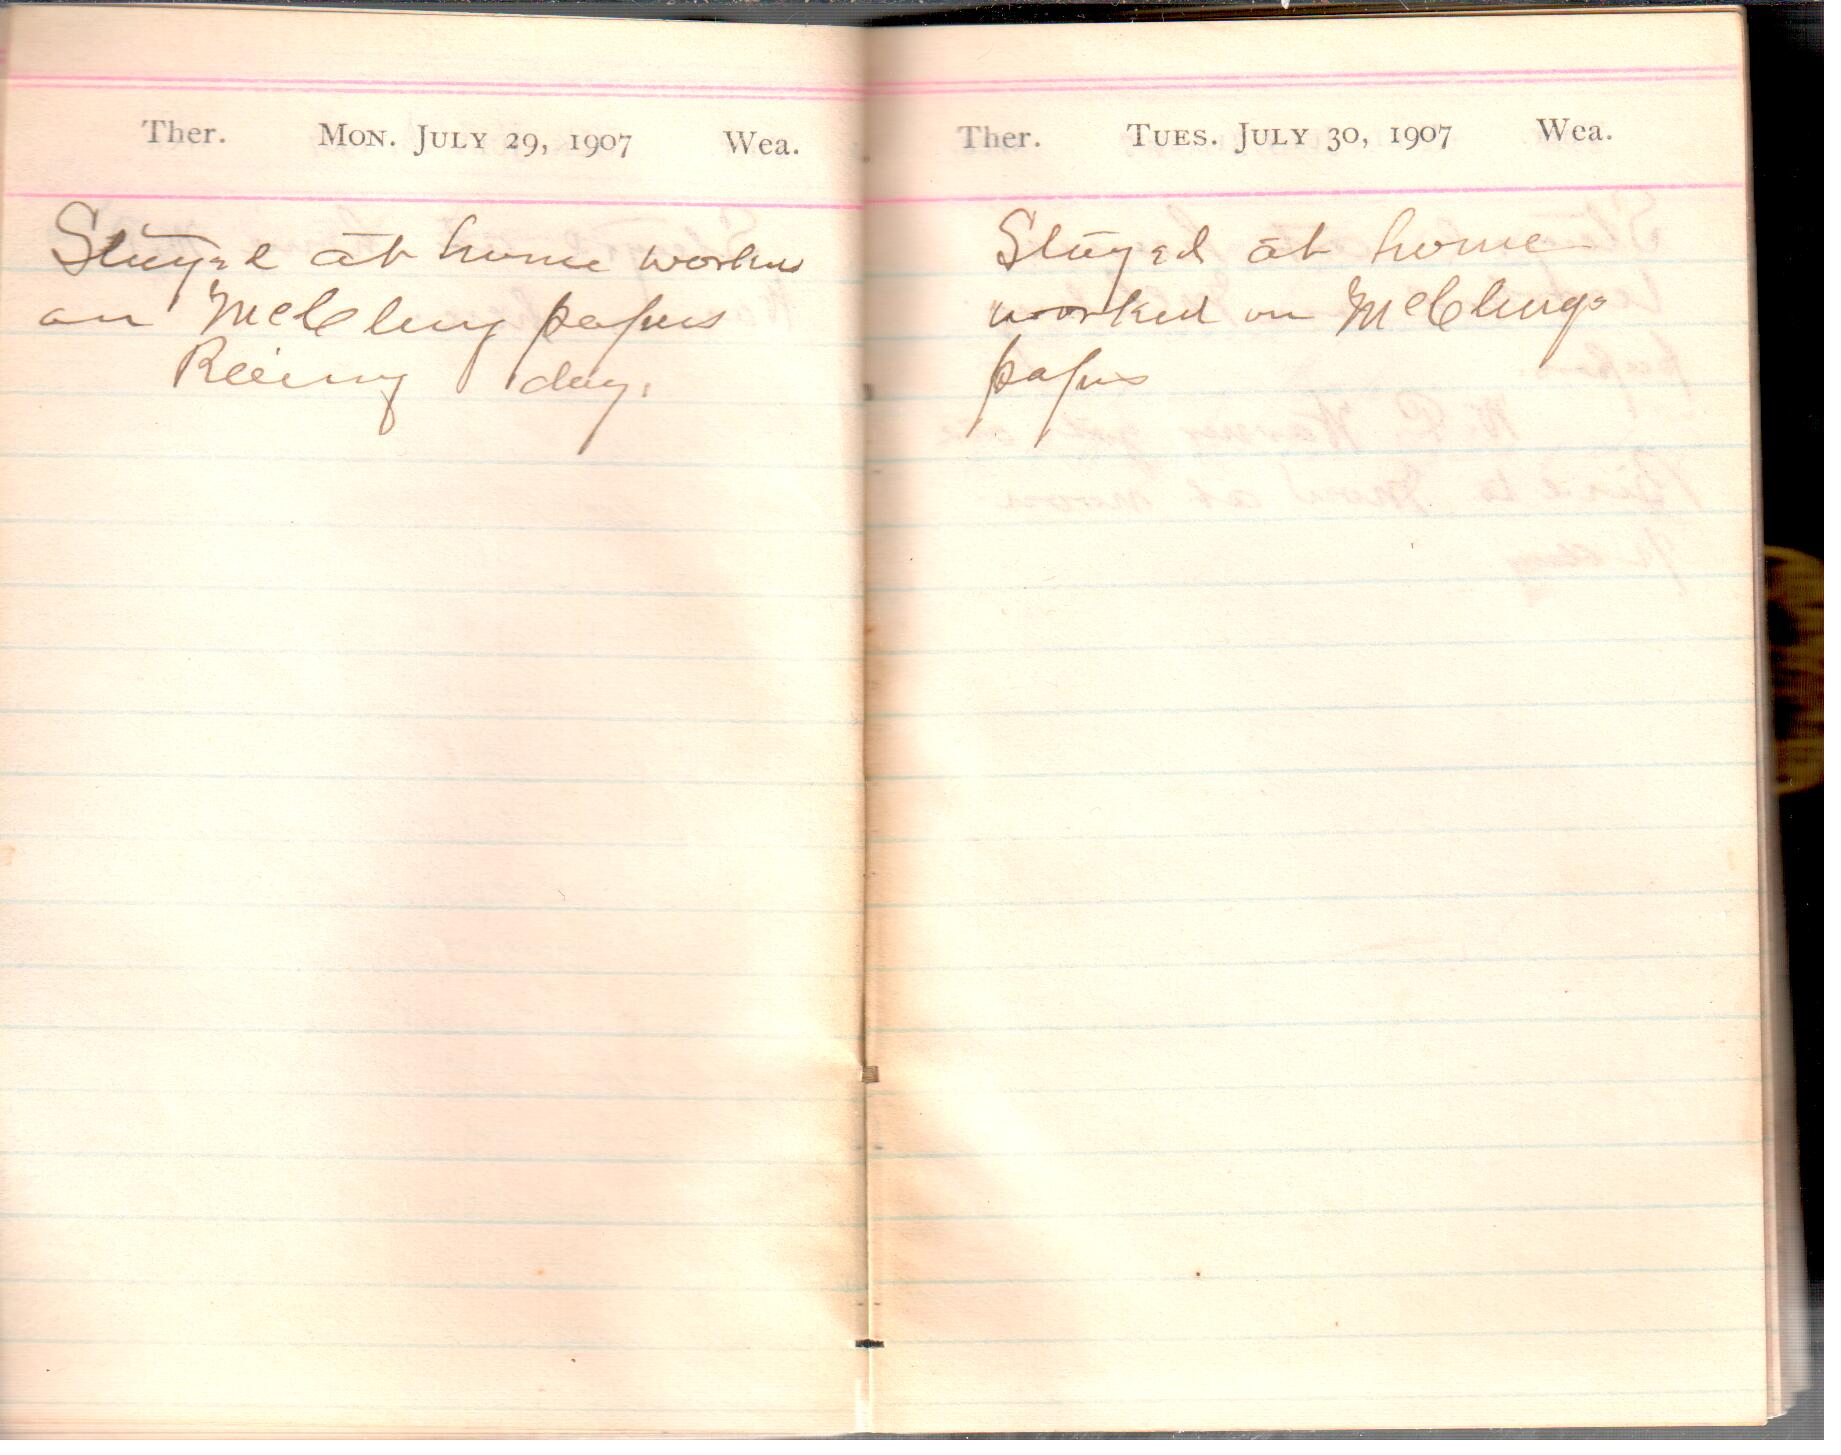 Ther. Mon. July 29, 1907 Wea.
Stayed at home workus
on McClung papers
Rainy day.
Ther. Tues. July 30, 1907 Wea.
Stayed at home
worked on McClungs
papers